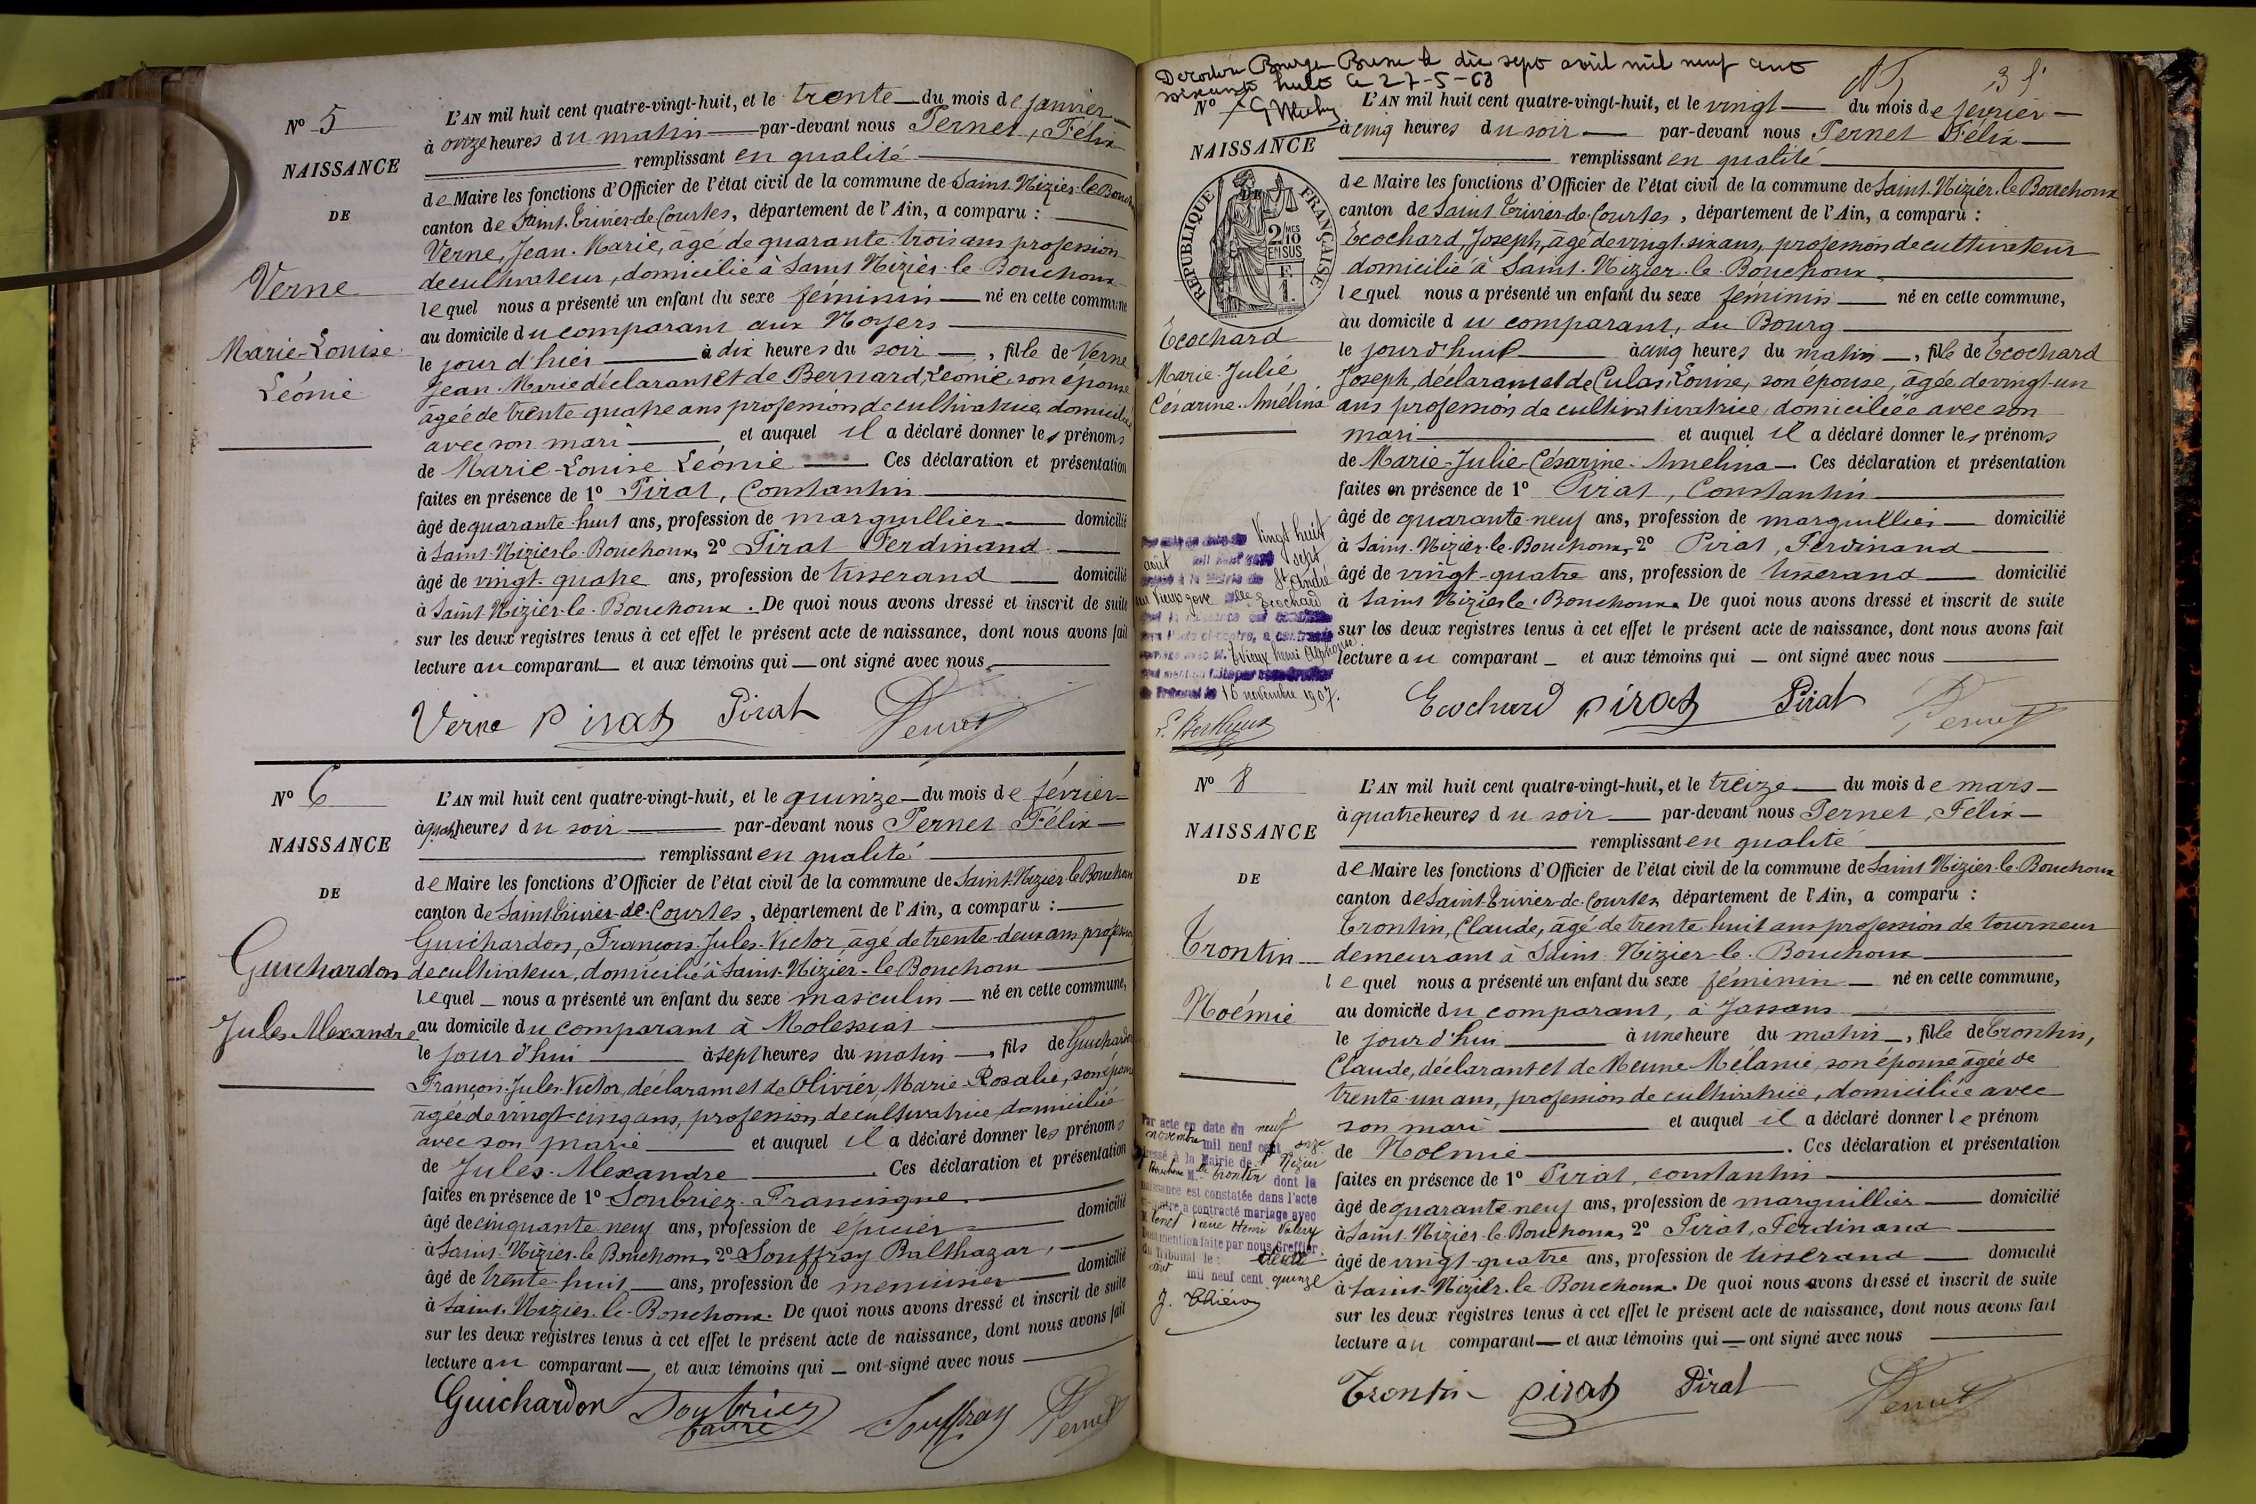 N° 5
NAISSANCE
DE
Verne
Marie-Louise
Léonie
L'AN mil huit cent quatre-vingt-huit, et le trente du mois de janvier
à onze heures du matin par-devant nous Pernet, Félix
remplissant en qualité
de Maire les fonctions d'Officier de l'état civil de la commune de Saint-Nizier-le-Bouchoux
canton de Saint-Trivier-de-Courtes, département de l'Ain, a comparu :
Verne, Jean-Marie, âgé de quarante-trois ans profession
de cultivateur, domicilié à Saint-Nizier-le-Bouchoux
lequel nous a présenté un enfant du sexe féminin né en cette commune
au domicile du comparant aux Noyers
le jour d'hier à dix heures du soir, fille de Verne
Jean-Marie déclarant et de Bernard, Léonie, son épouse
âgée de trente quatre ans profession de cultivatrice, domiciliée
avec son mari, et auquel il a déclaré donner les prénoms
de Marie-Louise Léonie Ces déclaration et présentation
faites en présence de 1° Pirat, Constantin
âgé de quarante-huit ans, profession de marguillier domicilié
à Saint-Nizier-le-Bouchoux, 2° Pirat Ferdinand
âgé de vingt-quatre ans, profession de tisserand domicilié
à Saint-Nizier-le-Bouchoux. De quoi nous avons dressé et inscrit de suite
sur les deux registres tenus à cet effet le présent acte de naissance, dont nous avons fait
lecture au comparant et aux témoins qui ont signé avec nous.
Verne Pirat Pirat Pernet
N° 6
NAISSANCE
DE
Guichardon
Jules-Alexandre
L'AN mil huit cent quatre-vingt-huit, et le quinze du mois de février
à quatre heures du soir par-devant nous Pernet Félix
remplissant en qualité
de Maire les fonctions d'Officier de l'état civil de la commune de Saint-Nizier-le-Bouchoux
canton de Saint-Trivier-de-Courtes, département de l'Ain, a comparu :
Guichardon, François-Jules-Victor, âgé de trente-deux ans, profession
de cultivateur, domicilié à Saint-Nizier-le-Bouchoux
lequel nous a présenté un enfant du sexe masculin né en cette commune,
au domicile du comparant à Molessiat
le jour d'hui à sept heures du matin, fils de Guichardon
François-Jules-Victor, déclarant et de Olivier, Marie-Rosalie, son épouse
âgée de vingt-cinq ans, profession de cultivatrice domiciliée
avec son marie et auquel il a déclaré donner les prénoms
de Jules-Alexandre. Ces déclaration et présentation
faites en présence de 1° Soubriez Francisque
âgé de cinquante neuf ans, profession de épicier domicilié
à Saint-Nizier-le-Bouchoux, 2° Souffray Balthazar,
âgé de trente-huit ans, profession de menuisier domicilié
à Saint-Nizier-le-Bouchoux. De quoi nous avons dressé et inscrit de suite
sur les deux registres tenus à cet effet le présent acte de naissance, dont nous avons fait
lecture au comparant, et aux témoins qui ont signé avec nous
Guichardon Soubriez Souffray Pernet
Favre
Bourg Bresse le dix sept avril mil neuf cent
soixante huit le 27-5-68
N° 7
NAISSANCE
DE
RÉPUBLIQUE FRANÇAISE
2 MES
10 EN SUS
Ecochard
Marie-Julie
Césarine-Amélina
L'AN mil huit cent quatre-vingt-huit, et le vingt du mois de février
à cinq heures du soir par-devant nous Pernet Félix
remplissant en qualité
de Maire les fonctions d'Officier de l'état civil de la commune de Saint-Nizier-le-Bouchoux
canton de Saint Trivier-de-Courtes, département de l'Ain, a comparu :
Ecochard, Joseph, âgé de vingt-six ans, profession de cultivateur
domicilié à Saint-Nizier-le-Bouchoux
lequel nous a présenté un enfant du sexe féminin né en cette commune,
au domicile du comparant, au Bourg
le jour d'hui à cinq heures du matin, fille de Ecochard
Joseph, déclarant et de Culas, Louise, son épouse, âgée de vingt-un
ans profession de cultivativatrice, domiciliée avec son
mari et auquel il a déclaré donner les prénoms
de Marie-Julie-Césarine-Amelina. Ces déclaration et présentation
faites en présence de 1° Pirat, Constantin
âgé de quarante-neuf ans, profession de marguillier domicilié
à Saint-Nizier-le-Bouchoux, 2° Pirat, Ferdinand
âgé de vingt-quatre ans, profession de tisserand domicilié
à Saint Nizier-le-Bouchoux. De quoi nous avons dressé et inscrit de suite
sur les deux registres tenus à cet effet le présent acte de naissance, dont nous avons fait
lecture au comparant et aux témoins qui ont signé avec nous
vingt huit
août sept
à la Mairie de St André
Ecochard
Vieux Henri Alphonse
16 novembre 1907.
Ecochard Pirat Pirat Pernet
N° 8
NAISSANCE
DE
Trontin
Noémie
L'AN mil huit cent quatre-vingt-huit, et le treize du mois de mars
à quatre heures du soir par-devant nous Pernet, Félix
remplissant en qualité
de Maire les fonctions d'Officier de l'état civil de la commune de Saint Nizier-le-Bouchoux
canton de Saint-Trivier-de-Courtes, département de l'Ain, a comparu :
Trontin, Claude, âgé de trente huit ans profession de tourneur
demeurant à Saint-Nizier-le-Bouchoux
lequel nous a présenté un enfant du sexe féminin né en cette commune,
au domicile du comparant, à Jassans
le jour d'hui à une heure du matin, fille de Trontin,
Claude, déclarant et de Meune Mélanie, son épouse âgée de
trente-un ans, profession de cultivatrice, domiciliée avec
son mari et auquel il a déclaré donner le prénom
de Noémie. Ces déclaration et présentation
faites en présence de 1° Pirat, constantin
âgé de quarante-neuf ans, profession de marguillier domicilié
à Saint-Nizier-le-Bouchoux, 2° Pirat, Ferdinand
âgé de vingt-quatre ans, profession de tisserand domicilié
à Saint-Nizier-le-Bouchoux. De quoi nous avons dressé et inscrit de suite
sur les deux registres tenus à cet effet le présent acte de naissance, dont nous avons fait
lecture au comparant et aux témoins qui ont signé avec nous
Par acte en date du neuf
novembre mil neuf cent onze
dressé à la Mairie de St Nizier
Trontin dont la
naissance est constatée dans l'acte
ci-contre a contracté mariage avec
Henri Valery
mention faite par nous Greffier
du Tribunal le
août mil neuf cent quinze
Trontin Pirat Pirat Pernet